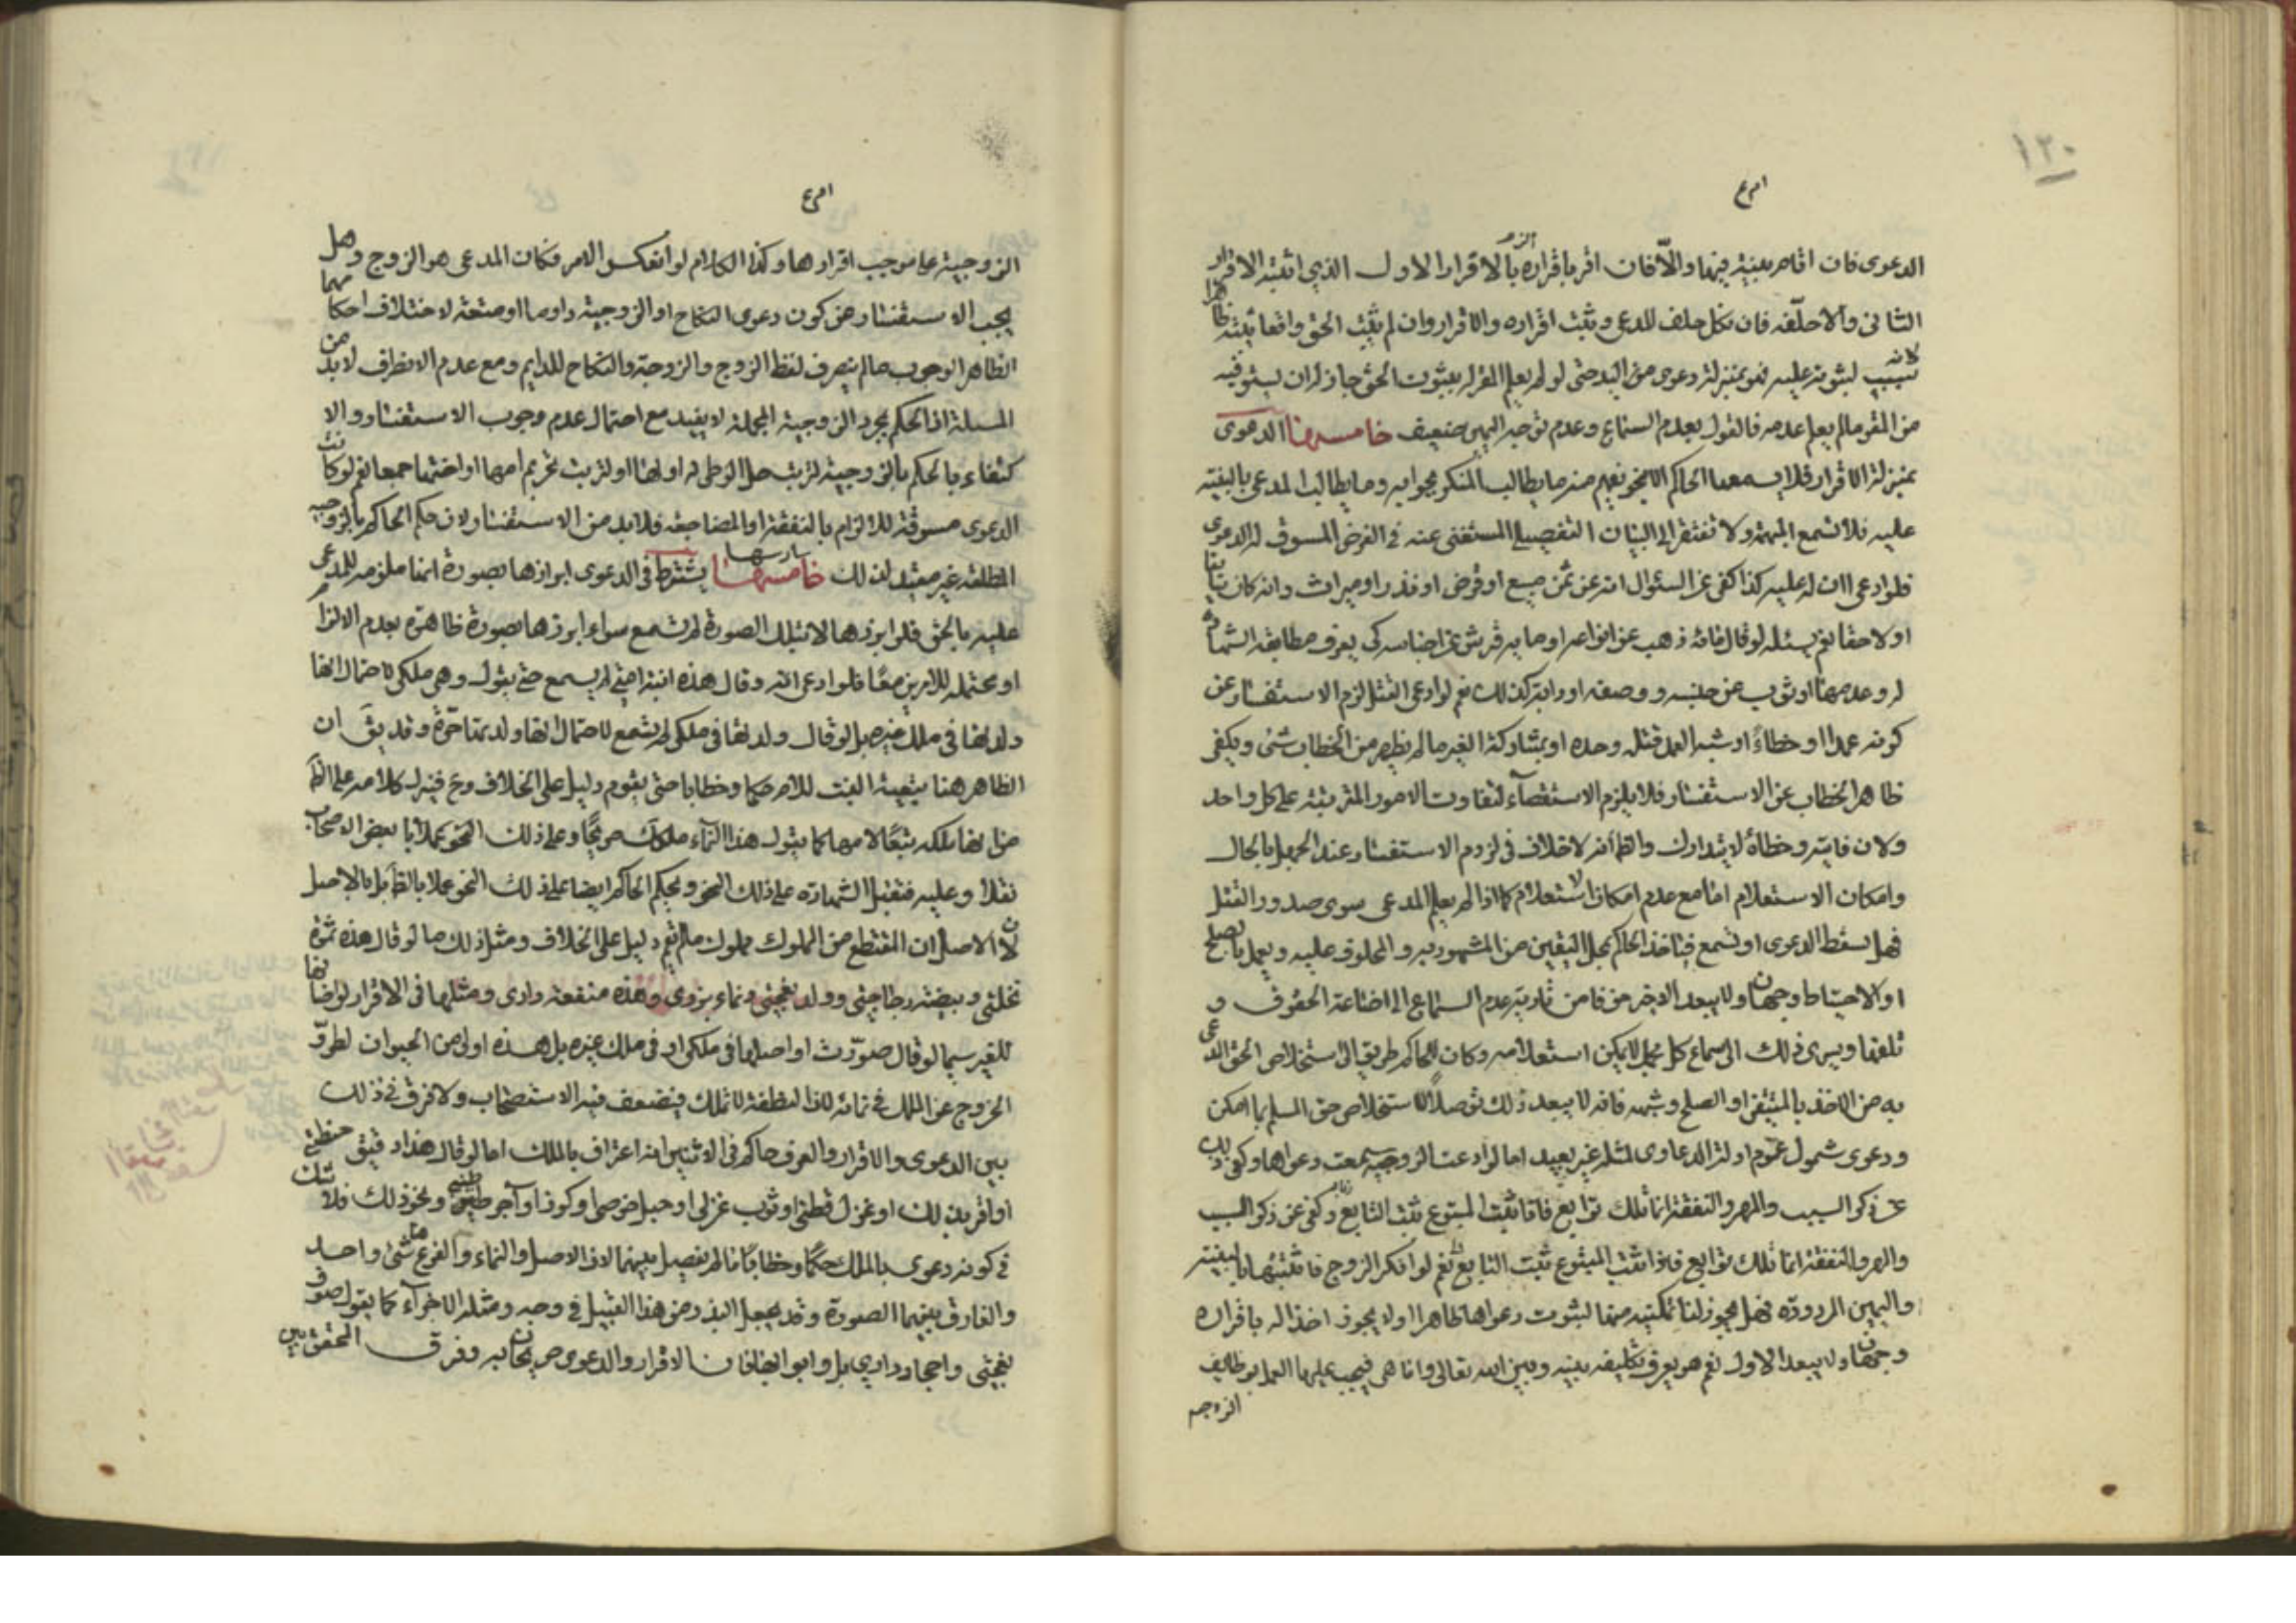 ١٢٠
الدعوى فان اقام بينة فيها والا فان اقر باقراره الزم بالاقرار الاول الذي اثبته الاقرار
الثاني والا حلفه فان نكل حلف المدعي وثبت اقراره والاقرار وان لم يثبت الحق واقعا يثبته ظاهرا
لانه سبب لثبوته عليه فهو بمنزلة دعوى من اليد حتى لو لم يعلم المقر له بثبوت الحق جاز له ان يستوفيه
من المقر مالم يعلم عدمه فالقول بعدم السماع وعدم توجه اليمين ضعيف خامسها الدعوى
بمنزلة الاقرار فلا يسمعها الحاكم الا بنحو يفهم منه ما يطالب المنكر بجوابه وما يطالب المدعي بالبينة
عليه فلا تسمع المبهمة ولا تفتقر الى البيان التفصيلي المستغنى عنه في الغرض المسوق له الدعوى
فلو ادعى ان له عليه كذا كفى عن السئوال انه عن ثمن مبيع او قرض او نذر او ميراث وانه كان سابقا
او لاحقا نعم يسئله لو قال فانه ذهب عن انواعه او ما به قرش عن اجناسه كي يعرف مطابقة الشهادة
له وعدمها او ثوب عن جنسه ووصفه او دابة كذلك نعم لو ادعى القتل لزم الاستفسار عن
كونه عمدا او خطاءً او شبه العمد قتله وحده او بمشاركة الغير ما لم يظهر من الخطاب شئ ويكفي
ظاهر الخطاب عن الاستفسار فلا يلزم الاستقصآء لتفاوت الامور المترتبة على كل واحد
ولان فايته وخطأه لا يتدارك والظ انه لا خلاف في لزوم الاستفسار عند الجهل بالحال
وامكان الاستعلام اما مع عدم امكان الاستعلام كما اذا لم يعلم المدعي سوى صدور القتل
فهل يسقط الدعوى او تسمع فياخذ الحاكم بمحل اليقين من المشهود به والمحلوف عليه ويعمل بالصلح
او الاحتياط وجهان ولا يبعد الاخير حرفا من تادية عدم السماع الى اضاعة الحقوق و
تلفها ويسري ذلك الى سماع كل مجمل لا يمكن استعلامه وكان للحاكم طريق الى استخلاص الحق المدعى
به من الاخذ بالمتيقن او الصلح وشبهه فانه لا يبعد ذلك توصلاً لاستخلاص حق المسلم بما امكن
ودعوى شمول عموم ادلة الدعاوى لمثله غير بعيد اما لو ادعت الزوجية سمعت دعواها وكفى ذلك
عن ذكر السبب والمهر والنفقة انما تلك توابع فاذا ثبت المتبوع ثبت التابع وكفى عن ذكر السبب
والمهر والنفقة انما تلك توابع فاذا ثبت المتبوع ثبت التابع نعم لو انكر الزوج فاثبتها بالبينة
واليمين المردودة فهل يجوز لنا تمكينه منها لثبوت دعواها ظاهرا او لا يجوز اخذا له باقراره
وجهان ولا يبعد الاول نعم هو يعرف تكليفه بينه وبين الله تعالى واما هي فيجب عليها العمل بوظايف
الزوجية
الزوجية على موجب اقرارها وكذا الكلام لو انعكس الامر فكان المدعي هو الزوج وهل
يجب الاستفسار من كون دعوى النكاح او الزوجية دواما او متعة لاختلاف احكامهما
الظاهر الوجوب مالم ينصرف لفظ الزوج والزوجة والنكاح للدايم ومع عدم الانصراف لابد من
المسئلة اذ الحكم بمجرد الزوجية المجملة لا يفيد مع احتمال عدم وجوب الاستفسار والا
كتفاء بالحكم بالزوجية لترتب حل الوطي له او لها او لترتب تحريم امها او اختها جمعا نعم لو كانت
الدعوى مسوقة للالزام بالنفقة او المضاجعة فلابد من الاستفسار لان حكم الحاكم بالزوجية
المطلقة غير مفيد لذلك خامسها سادسها يشترط في الدعوى ابرازها بصورة انها ملزمه للمدعى
عليه بالحق فلو ابرزها لا بتلك الصورة لم تسمع سواء ابرزها بصورة ظاهرة بعدم الالزام
او محتمله للامرين معًا فلو ادعى امة وقال هذه ابنة امتي لم يسمع حتى يقول وهي ملكي لاحتمال انها
ولدتها في ملك غيره بل لو قال ولدتها في ملكي لم تسمع لاحتمال انها ولدتها حرة وقد يق ان
الظاهر هنا تبعية البنت للام حكما وخطابا حتى يقوم دليل على الخلاف وح فينزل كلامه على الظ
من انها ملكه تبعًا لامها كما يقول هذا النماء ملكك صريحًا وعلى ذلك النحو عمل الاصحاب
نقلا وعليه فتقبل الشهادة على ذلك النحو ويحكم الحاكم ايضا على ذلك النحو عملا بالظ بل بالاصل
لان الاصل ان المقتطع من المملوك مملوك مالم يقم دليل على الخلاف ومثل ذلك ما لو قال هذه ثمرة
نخلتي وبيضة دجاجتي وولد نعجتي ونماء بزري وهذه منفعة داري ومثلها في الاقرار لو اضافها
للغير سيما لو قال صورت او اصلها في ملكي او في ملك غيره بل هذه اولى من الحيوان لطرو
الخروج عن الملك في نمائه لان النطفة لا تملك فيضعف فيه الاستصحاب ولا فرق في ذلك
بين الدعوى والاقرار والعرف حاكم في الاثنين انه اعتراف بالملك اما لو قال هذا دقيق حنطتي
او اقر بذلك او غزل قطني او ثوب غزلي او حبل خوصي او كوز او آجر طيني ونحو ذلك فلا شك
في كونه دعوى بالملك حكمًا وخطابًا مالم يفصل بينهما لان الاصل والنماء والفرع هنا شئ واحد
والفارق بينهما الصورة وقد يجعل البذر من هذا القبيل في وجه ومثله الاجزآء كما يقول صوف
نعجتي واحجار داري بل وابوابها فان الاقرار والدعوى صريحان به وفرق المحقق بين